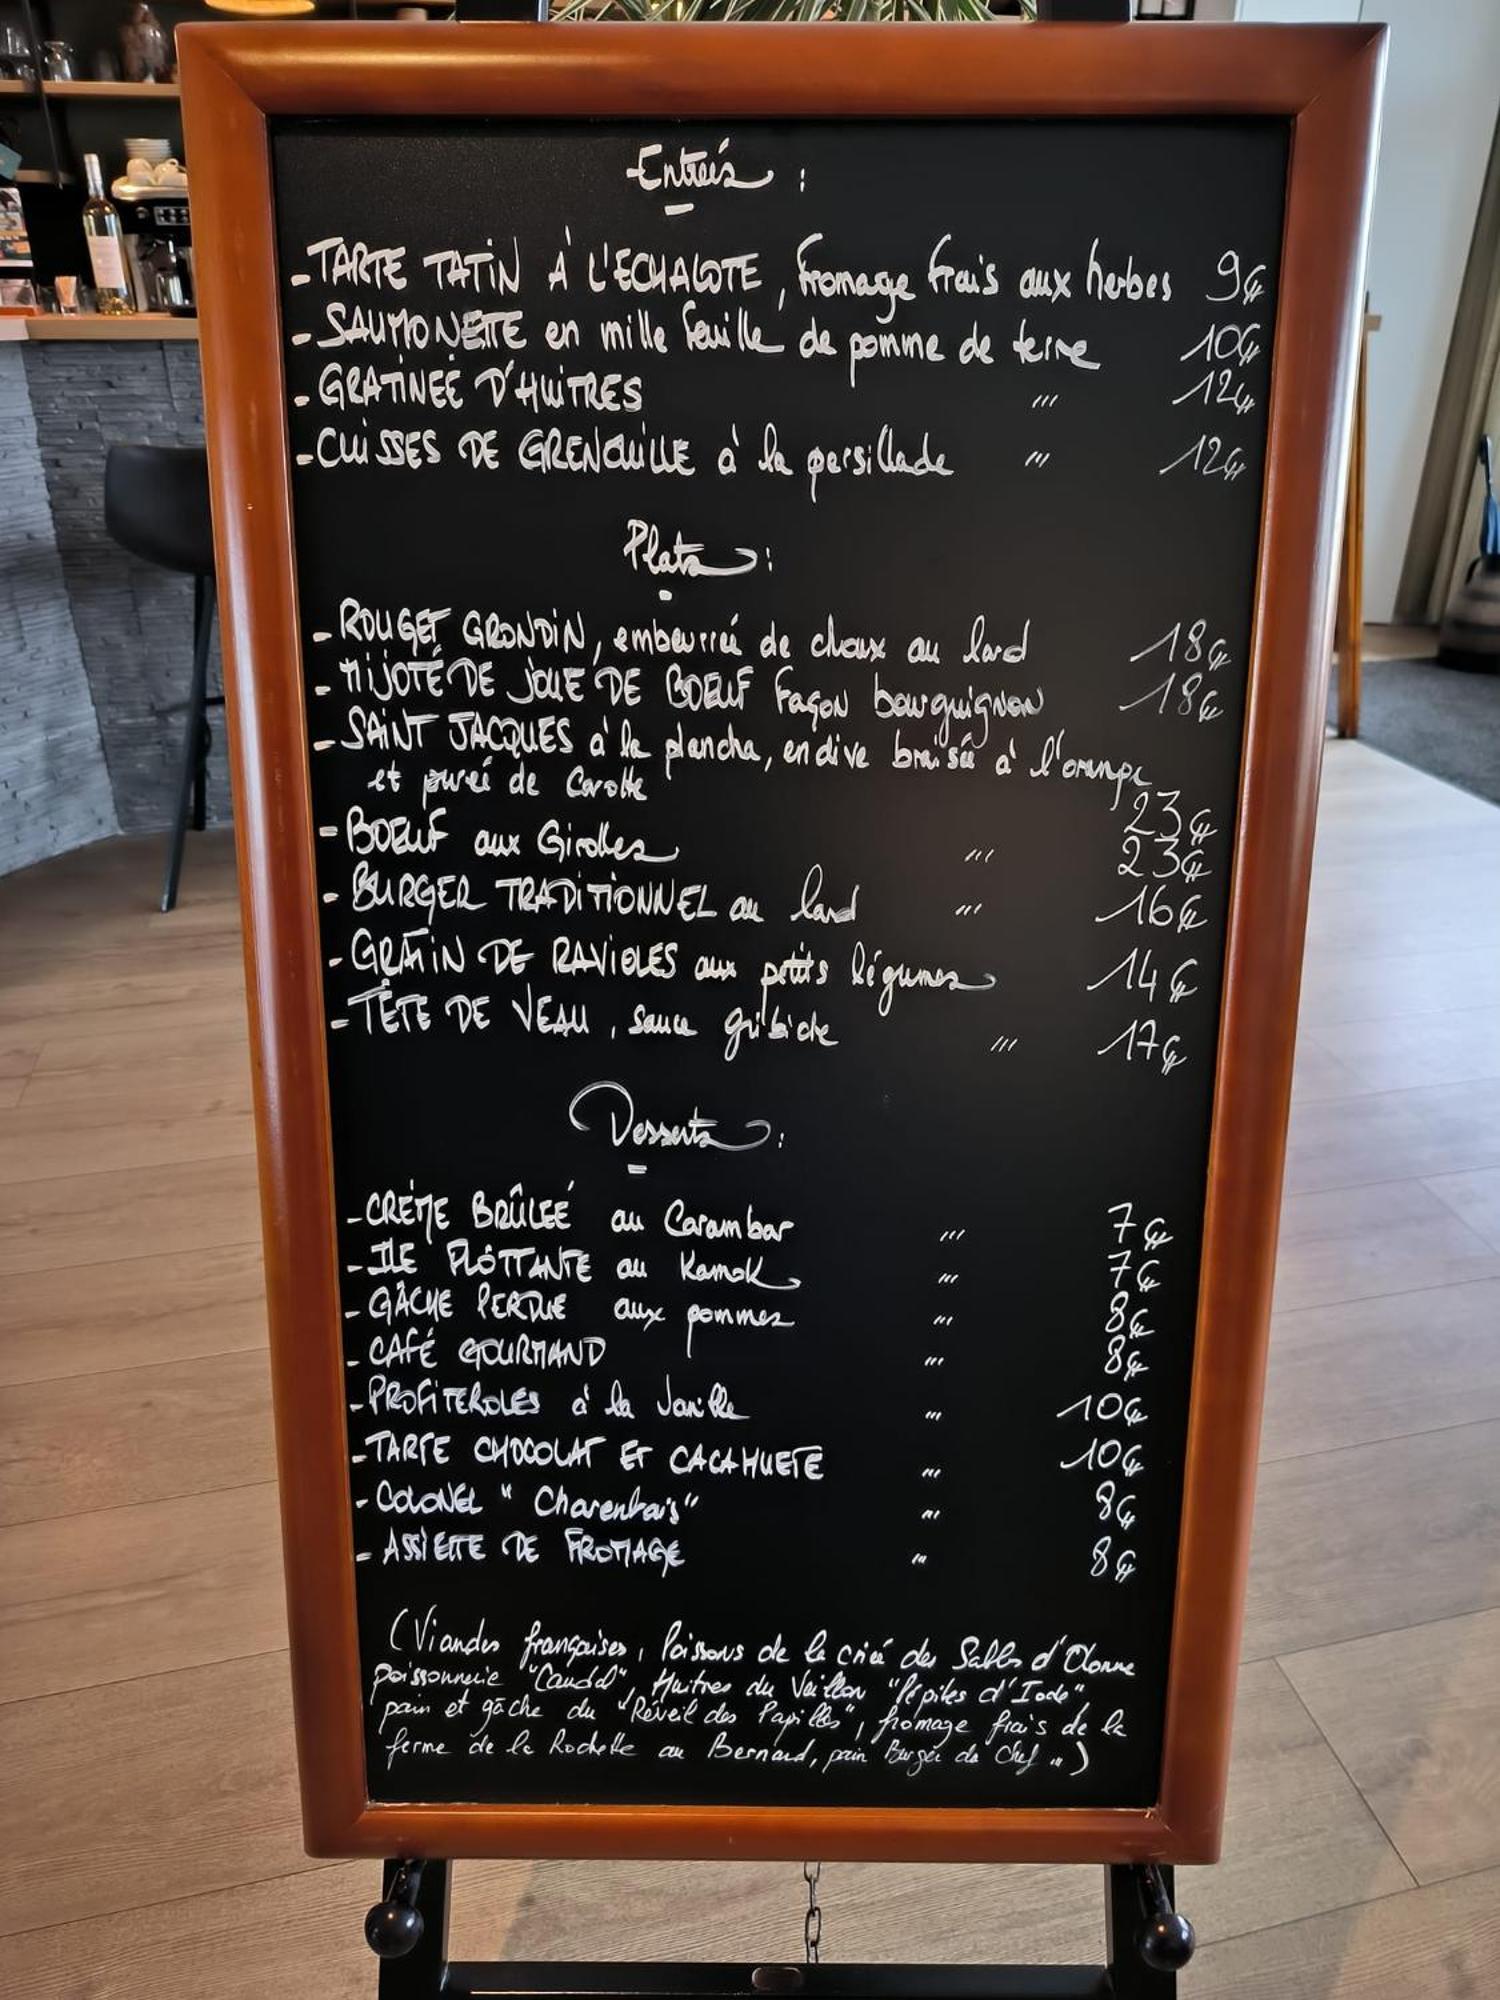 Entrées :
- TARTE TATIN À L'ECHALOTE, fromage frais aux herbes 9€
- SAUMONETTE en mille feuille de pomme de terre 10€
- GRATINEÉ D'HUITRES " 12€
- CUISSES DE GRENOUILLE à la persillade " 12€
Plats :
- ROUGET GRONDIN, embeurrée de choux au lard 18€
- MIJOTÉ DE JOUE DE BOEUF façon bourguignon 18€
- SAINT JACQUES à la plancha, endive braisée à l'orange
et purée de Carotte 23€
- BOEUF aux Girolles " 23€
- BURGER TRADITIONNEL au lard " 16€
- GRATIN DE RAVIOLES aux petits légumes 14€
- TÊTE DE VEAU, sauce gribiche " 17€
Desserts :
- CRÈME BRÛLEÉ au Carambar " 7€
- ILE FLOTTANTE au Kamok " 7€
- GÂCHE PERDUE aux pommes " 8€
- CAFÉ GOURMAND " 8€
- PROFITEROLES à la Vanille " 10€
- TARTE CHOCOLAT ET CACAHUETE " 10€
- COLONEL "Charentais" " 8€
- ASSIETTE DE FROMAGE " 8€
(Viandes françaises, Poissons de la criée des Sables d'Olonne
poissonnerie, Huitres du Veillon "Pépites d'Iode"
pain et gâche du "Réveil des Papilles", fromage frais de la
ferme de la Rochette au Bernard, pain Burger du Chef ...)